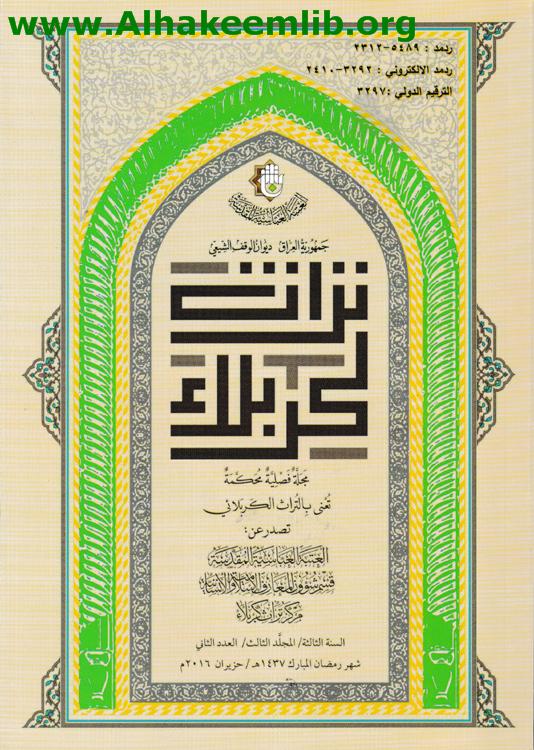 www.Alhakeemlib.org
ردمد : ٥٤٨٩-٢٣١٢
ردمد الالكتروني : ٣٢٩٢-٢٤١٠
الترقيم الدولي : ٣٢٩٧
العتبة العباسية المقدسة
جمهورية العراق ديوان الوقف الشيعي
تراث
كربلاء
مجلة فصلية محكمة
تعنى بالتراث الكربلائي
تصدر عن:
العتبة العباسية المقدسة
قسم شؤون المعارف الإسلامية والإنسانية
مركز تراث كربلاء
السنة الثالثة/ المجلد الثالث/ العدد الثاني
شهر رمضان المبارك ١٤٣٧هـ / حزيران ٢٠١٦م